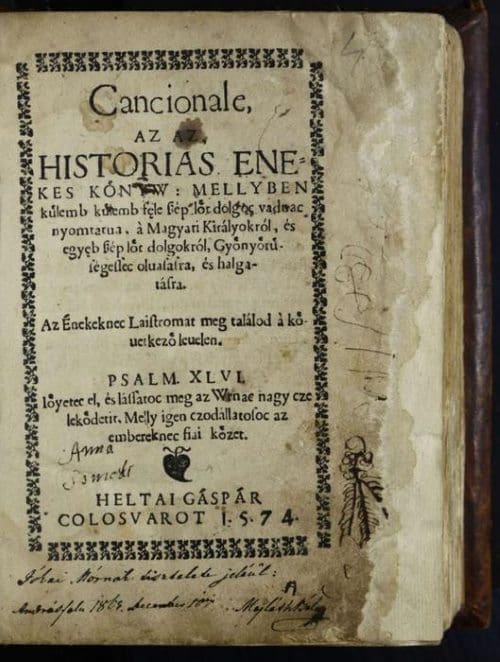 Cancionale,
AZ AZ,
HISTORIAS ENE-
KES KŐNYW: MELLYBEN
kůlemb kůlemb féle ſzép lőt dolgoc vadnac
nyomtatua, à Magyari Királyokról, és
egyéb ſzép lőt dolgokról, Gyönyőrů-
ségeſſec oluasáſra, és halga-
táſra.
Az Énekeknec Laiſtromát meg találod à kő-
uetkező leuelen.
PSALM. XLVI.
Iőyetec el, és láſſátoc meg az Wrnac nagy cze
lekődetit. Melly igen czodállatoſoc az
embereknec fiai kőzet.
Anna
HELTAI GÁSPÁR
COLOSVAROT 1.5.74.
Jókai Mórnak tisztelete jeleül:
Andrásfalu 186 december